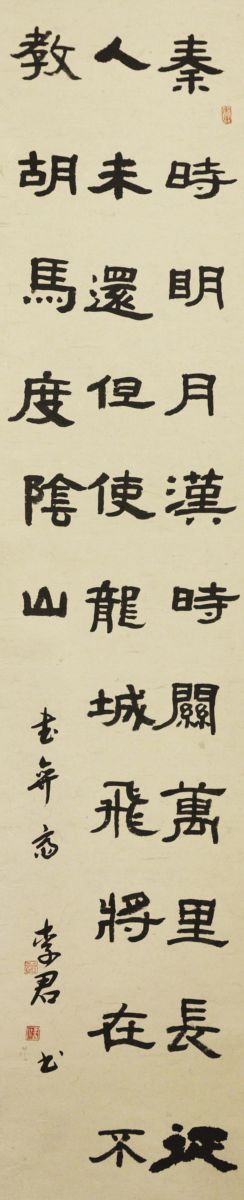 秦時明月漢時關萬里長征
人未還但使龍城飛將在不
教胡馬度陰山
李君 書